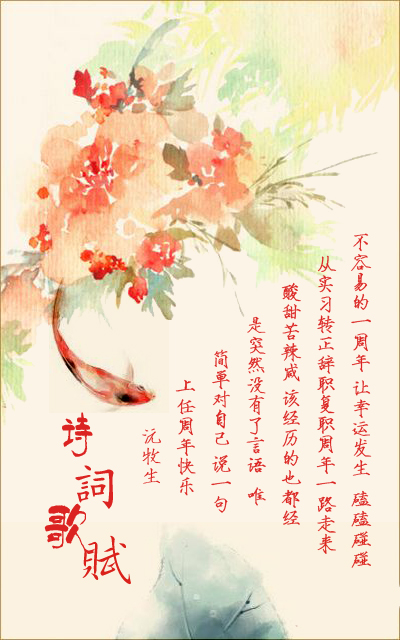 不容易的一周年 让幸运发生 磕磕碰碰
从实习转正辞职复职周年一路走来
酸甜苦辣咸 该经历的也都经
是突然没有了言语 唯
简单对自己 说一句
上任周年快乐
沅牧生
诗
詞
歌
賦